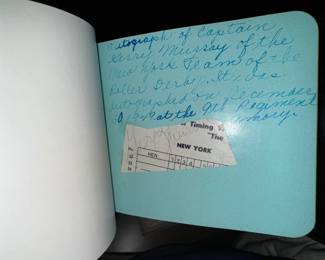 Autograph of Captain
Gerry Murray of the
New York Team of the
Roller Derby. It was
autographed on December
at the 9th Regiment
Armory.
Timing
"The
NEW YORK
MEN
1 2 3 4